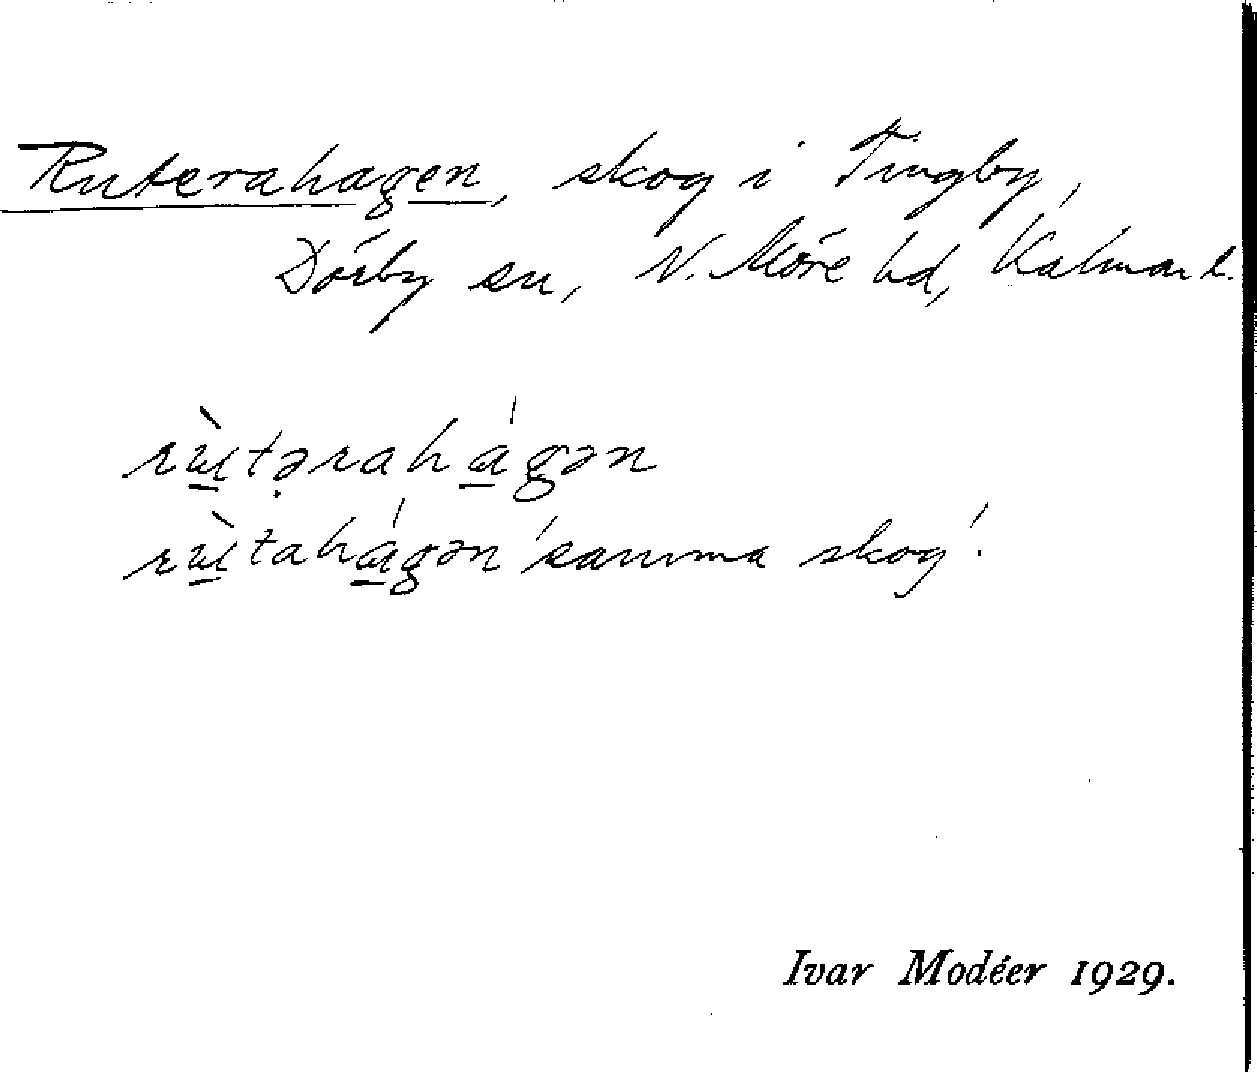 Ruterahagen, skog i Tingby,
Dörby sn, N. Möre hd, Kalmar l.
rùtərahágən
rùtahágən 'samma skog'.
Ivar Modéer 1929.